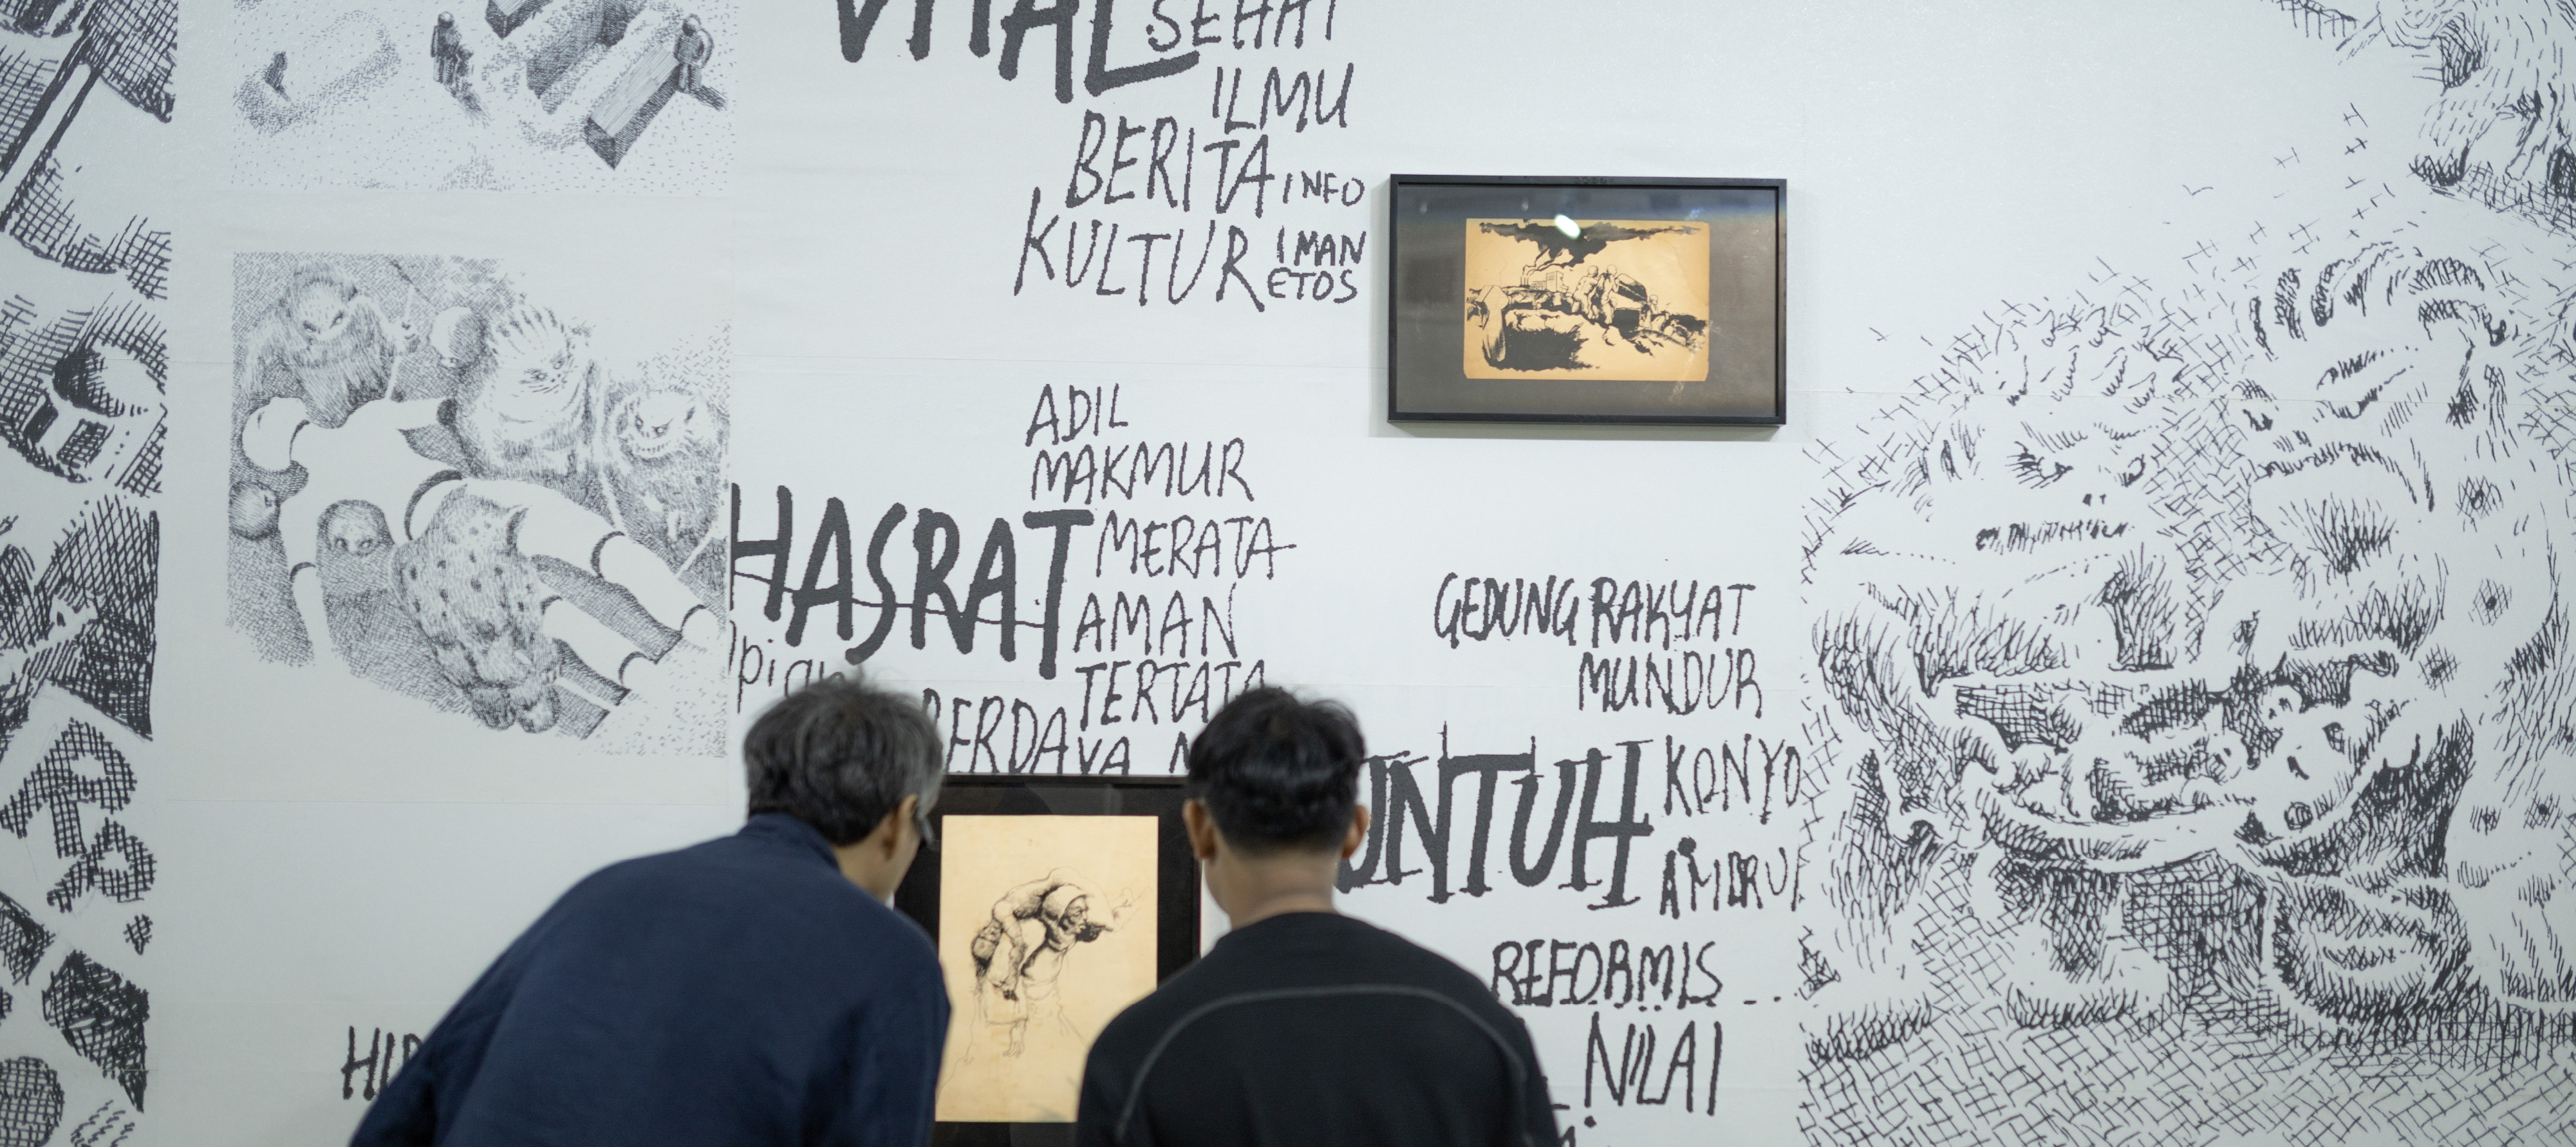 VITAL SEHAT
ILMU
BERITA INFO
KULTUR IMAN
ETOS
ADIL
MAKMUR
HASRAT MERATA
AMAN
TERTATA
BERDAYA
GEDUNG RAKYAT
MUNDUR
UNTUH KONYO
AMBRU
REFORMIS...
NILAI